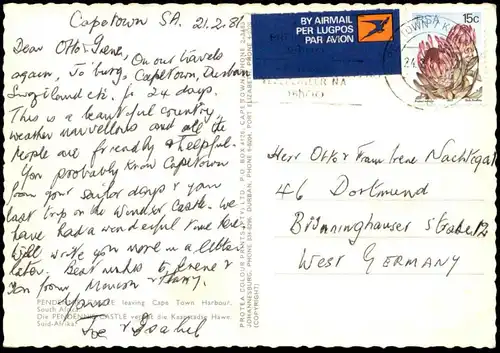 Capetown SA. 21.2.81
Dear Otto & Irene, On our travels
again, Jo'burg, Capetown, Durban
Swaziland etc. for 24 days.
This is a beautiful country,
weather marvellous and all the
people are friendly & helpful.
You probably know Capetown
from your sailor days & your
last trip on the Windsor Castle. We
have had a wonderful time here.
Will write you more in a letter
later. Best wishes to Irene &
You from
Joe & Isabel
BY AIRMAIL
PER LUGPOS
PAR AVION
RSA 15c
Herr Otto & Frau Irene Nachtigall
46 Dortmund
Brünninghauser Straße
WEST GERMANY
PENDENNIS CASTLE leaving Cape Town Harbour,
South Africa.
Die PENDENNIS CASTLE verlaat die Kaapstadse Hawe,
Suid-Afrika.
PROTEA COLOUR PRINTS (PTY) LTD. P.O. BOX 4126, CAPE TOWN
JOHANNESBURG, DURBAN, PORT ELIZABETH
(COPYRIGHT)